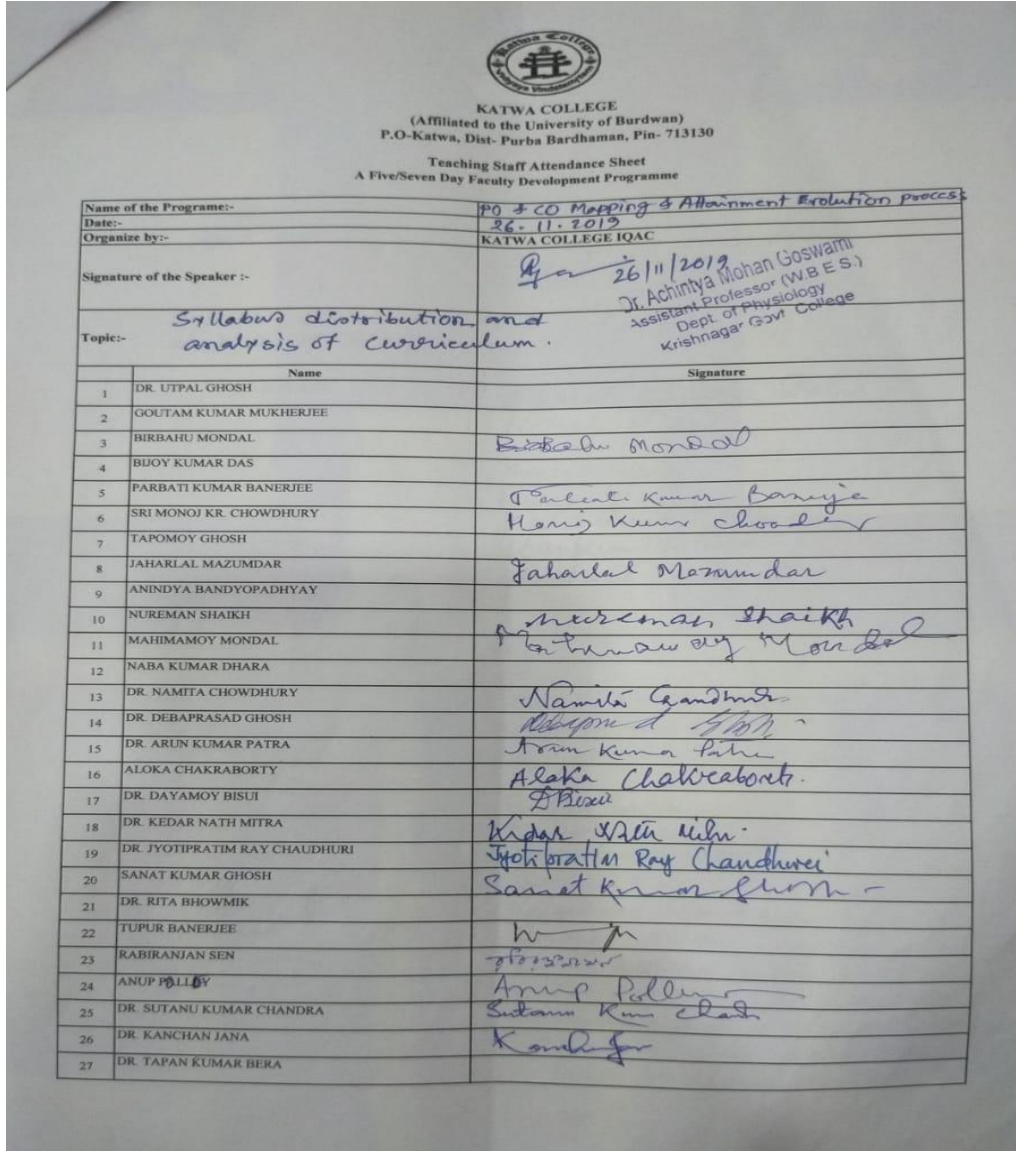 Katwa College
Vidyaya Vindateamritam
KATWA COLLEGE
(Affiliated to the University of Burdwan)
P.O-Katwa, Dist- Purba Bardhaman, Pin- 713130
Teaching Staff Attendance Sheet
A Five/Seven Day Faculty Devolopment Programme
Name of the Programe:- PO & CO Mapping & Attainment Evolution process
Date:- 26.11.2019
Organize by:- KATWA COLLEGE IQAC
Signature of the Speaker :- 26/11/2019
Dr. Achintya Mohan Goswami
Assistant Professor (W.B E S.)
Dept. of Physiology
Krishnagar Govt College
Topic:- Syllabus distribution and
analysis of curriculum.
Name Signature
1 DR. UTPAL GHOSH
2 GOUTAM KUMAR MUKHERJEE
3 BIRBAHU MONDAL Birbahu Mondal
4 BIJOY KUMAR DAS
5 PARBATI KUMAR BANERJEE Parbati Kumar Banerjee
6 SRI MONOJ KR. CHOWDHURY Monoj Kumar
7 TAPOMOY GHOSH
8 JAHARLAL MAZUMDAR Jaharlal Mazumdar
9 ANINDYA BANDYOPADHYAY
10 NUREMAN SHAIKH Nureman Shaikh
11 MAHIMAMOY MONDAL Mondal
12 NABA KUMAR DHARA
13 DR. NAMITA CHOWDHURY Namita
14 DR. DEBAPRASAD GHOSH
15 DR. ARUN KUMAR PATRA Arun Kumar Patra
16 ALOKA CHAKRABORTY Aloka Chakraborty.
17 DR. DAYAMOY BISUI DBisui
18 DR. KEDAR NATH MITRA Kedar Nath
19 DR. JYOTIPRATIM RAY CHAUDHURI Jyotipratim Ray Chaudhuri
20 SANAT KUMAR GHOSH Sanat Kumar Ghosh
21 DR. RITA BHOWMIK
22 TUPUR BANERJEE
23 RABIRANJAN SEN
24 ANUP POLLEY Anup Polley
25 DR. SUTANU KUMAR CHANDRA Sutanu Kumar
26 DR. KANCHAN JANA
27 DR. TAPAN KUMAR BERA